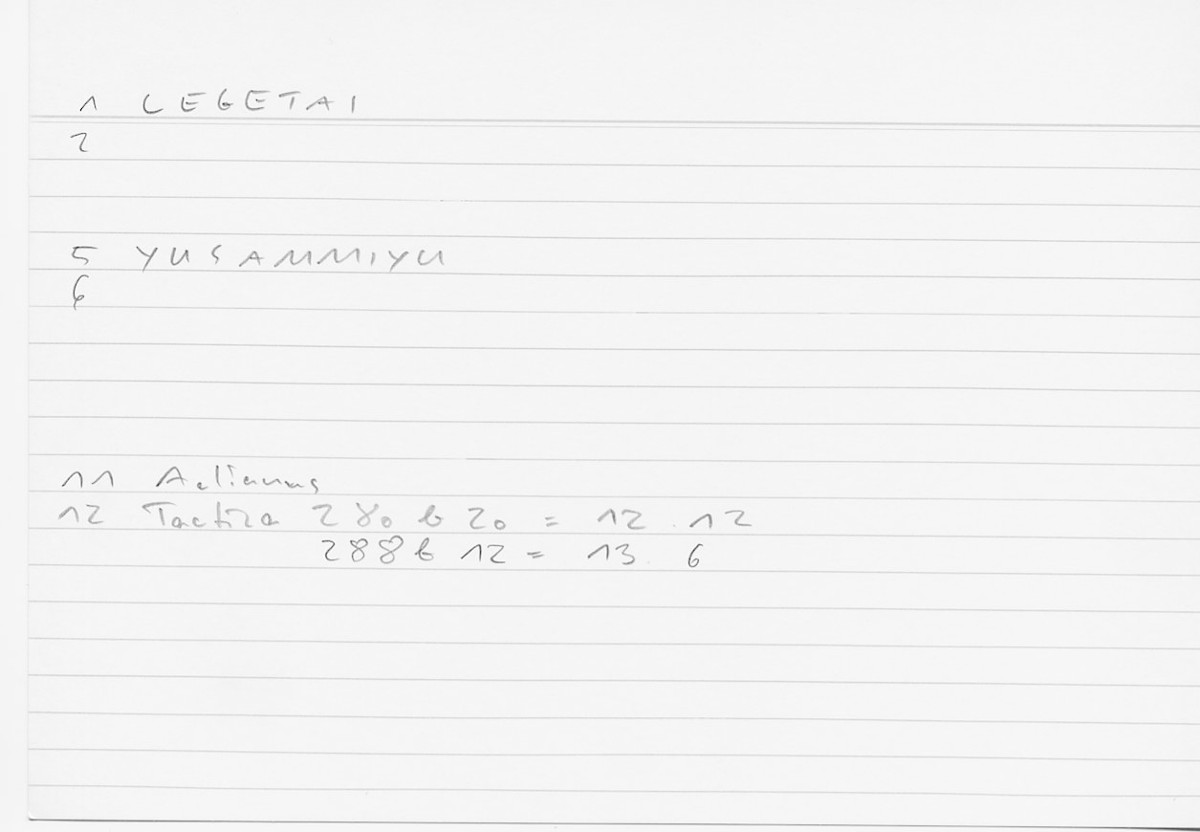 1 LEGETAI
2
5 YUSAMMIYU
6
11 Aelianus
12 Tactica 280 b 20 = 12.12
288 b 12 = 13.6